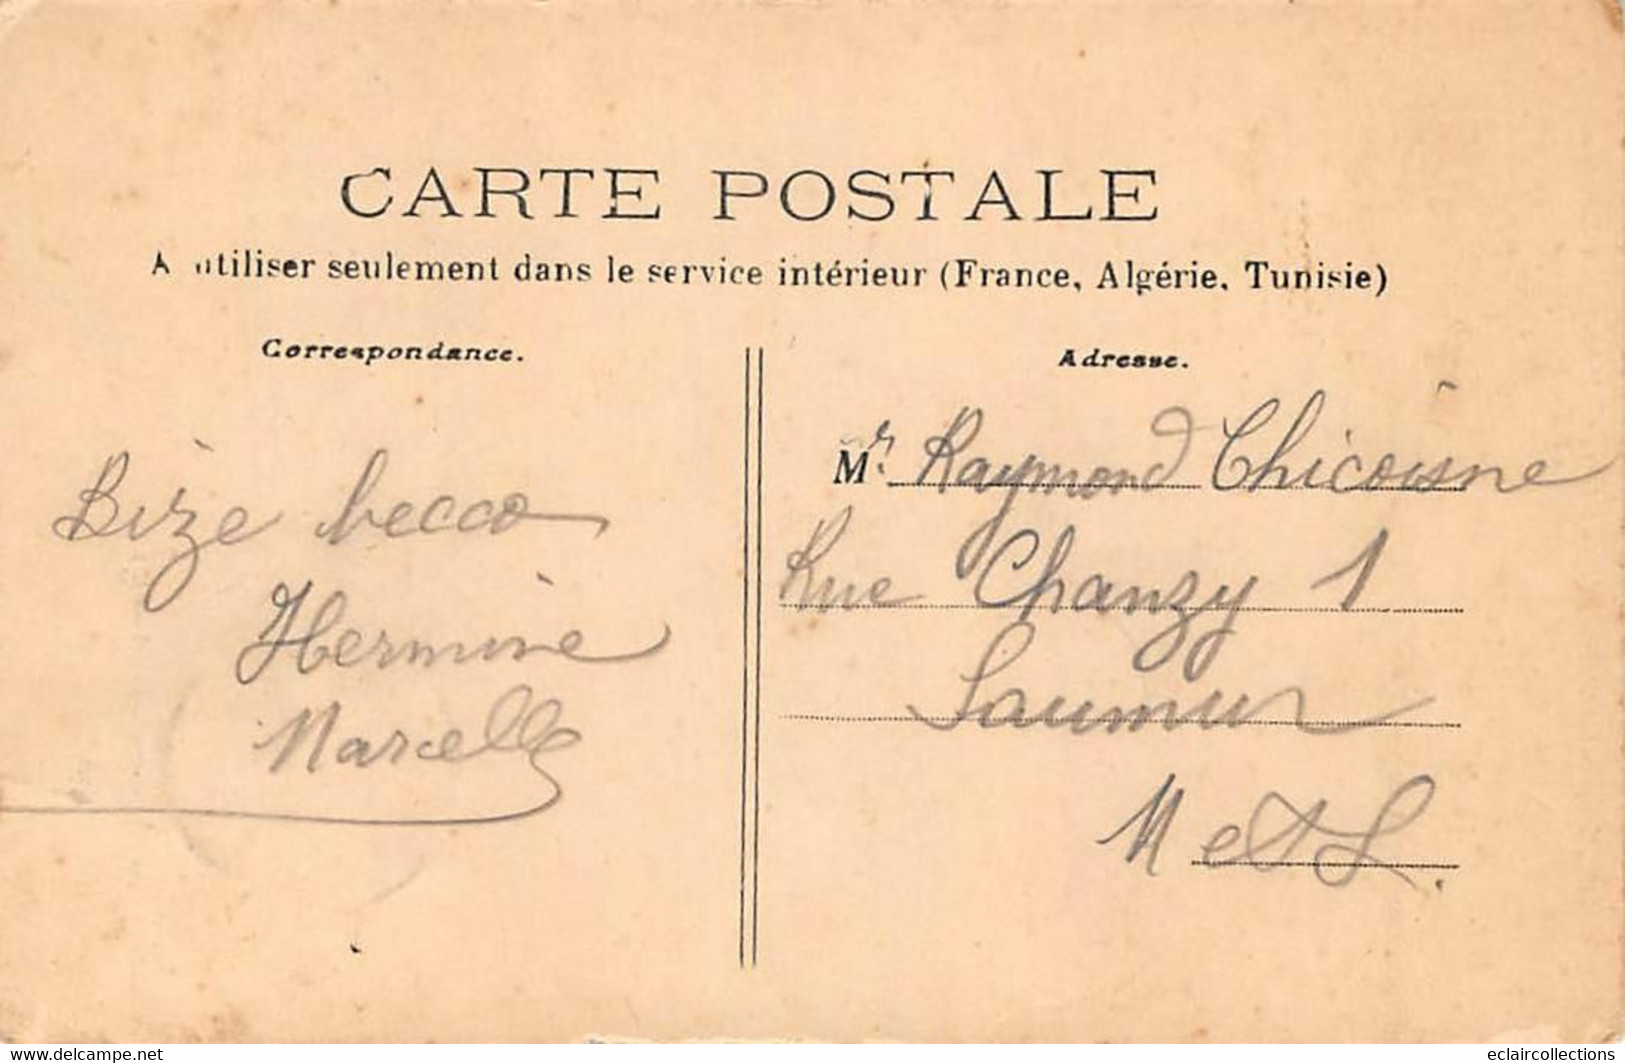 CARTE POSTALE
A utiliser seulement dans le service intérieur (France, Algérie, Tunisie)
Correspondance.
Bize becco
Hermine
Marcelle
Adresse.
Mr. Raymond Chicoisne
Rue Chanzy 1
Saumur
M et L.
www.delcampe.net
eclaircollections